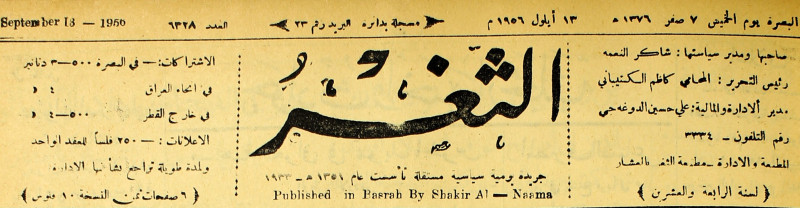 البصرة يوم الخميس ٧ صفر ١٣٧٦ هـ ١٣ أيلول ١٩٥٦ م مسجلة بدائرة البريد رقم ٢٣ العدد ٦٣٢٨ September 13 — 1956
صاحبها ومدير سياستها : شاكر النعمه
رئيس التحرير : المحامي كاظم الكنيباني
مدير الادارة والمالية : علي حسين الدوغه جي
رقم التلفون - ٣٣٣٤
المطبعة والادارة - مطبعة الثغر بالعشار
﴿ لسنة الرابعة والعشرين ﴾
الثغر
جريدة يومية سياسية مستقلة تأسست عام ١٣٥١ هـ - ١٩٣٣
Published in Basrah By Shakir Al — Naama
الاشتراكات : — في البصرة ٥٠٠-٣ دنانير
في انحاء العراق ٤ د
في خارج القطر ٥٠٠-٤ د
الاعلانات : — ٢٥٠ فلساً للعقد الواحد
ولمدة طويلة تراجع بشأنها الادارة
﴿ ٦ صفحات ثمن النسخة ١٠ فلوس ﴾